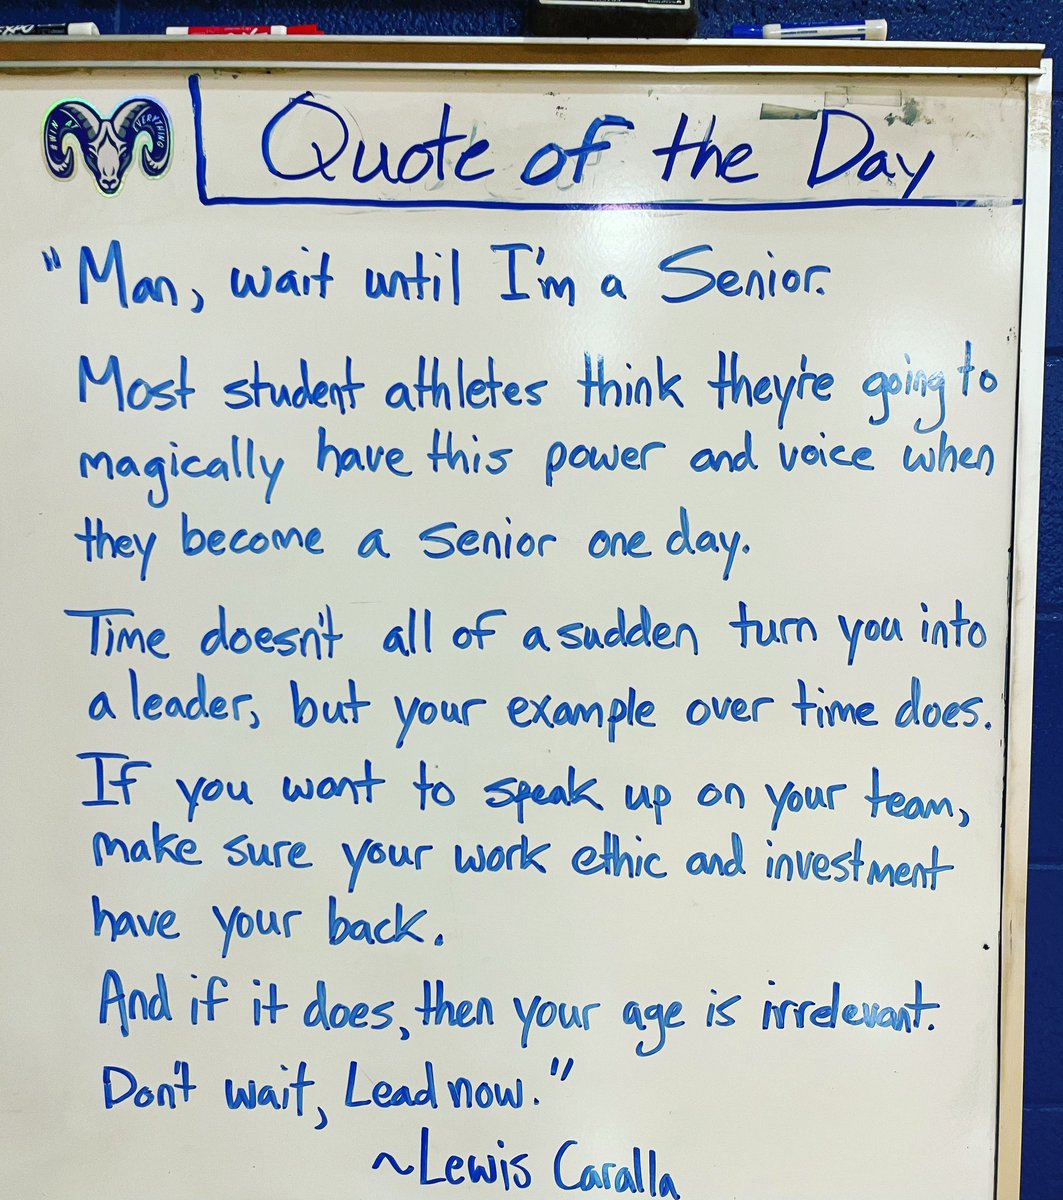 EXPO
WIN AT EVERYTHING
Quote of the Day
"Man, wait until I'm a Senior.
Most student athletes think they're going to
magically have this power and voice when
they become a senior one day.
Time doesn't all of a sudden turn you into
a leader, but your example over time does.
If you want to speak up on your team,
make sure your work ethic and investment
have your back.
And if it does, then your age is irrelevant.
Don't wait, Lead now."
~Lewis Caralla